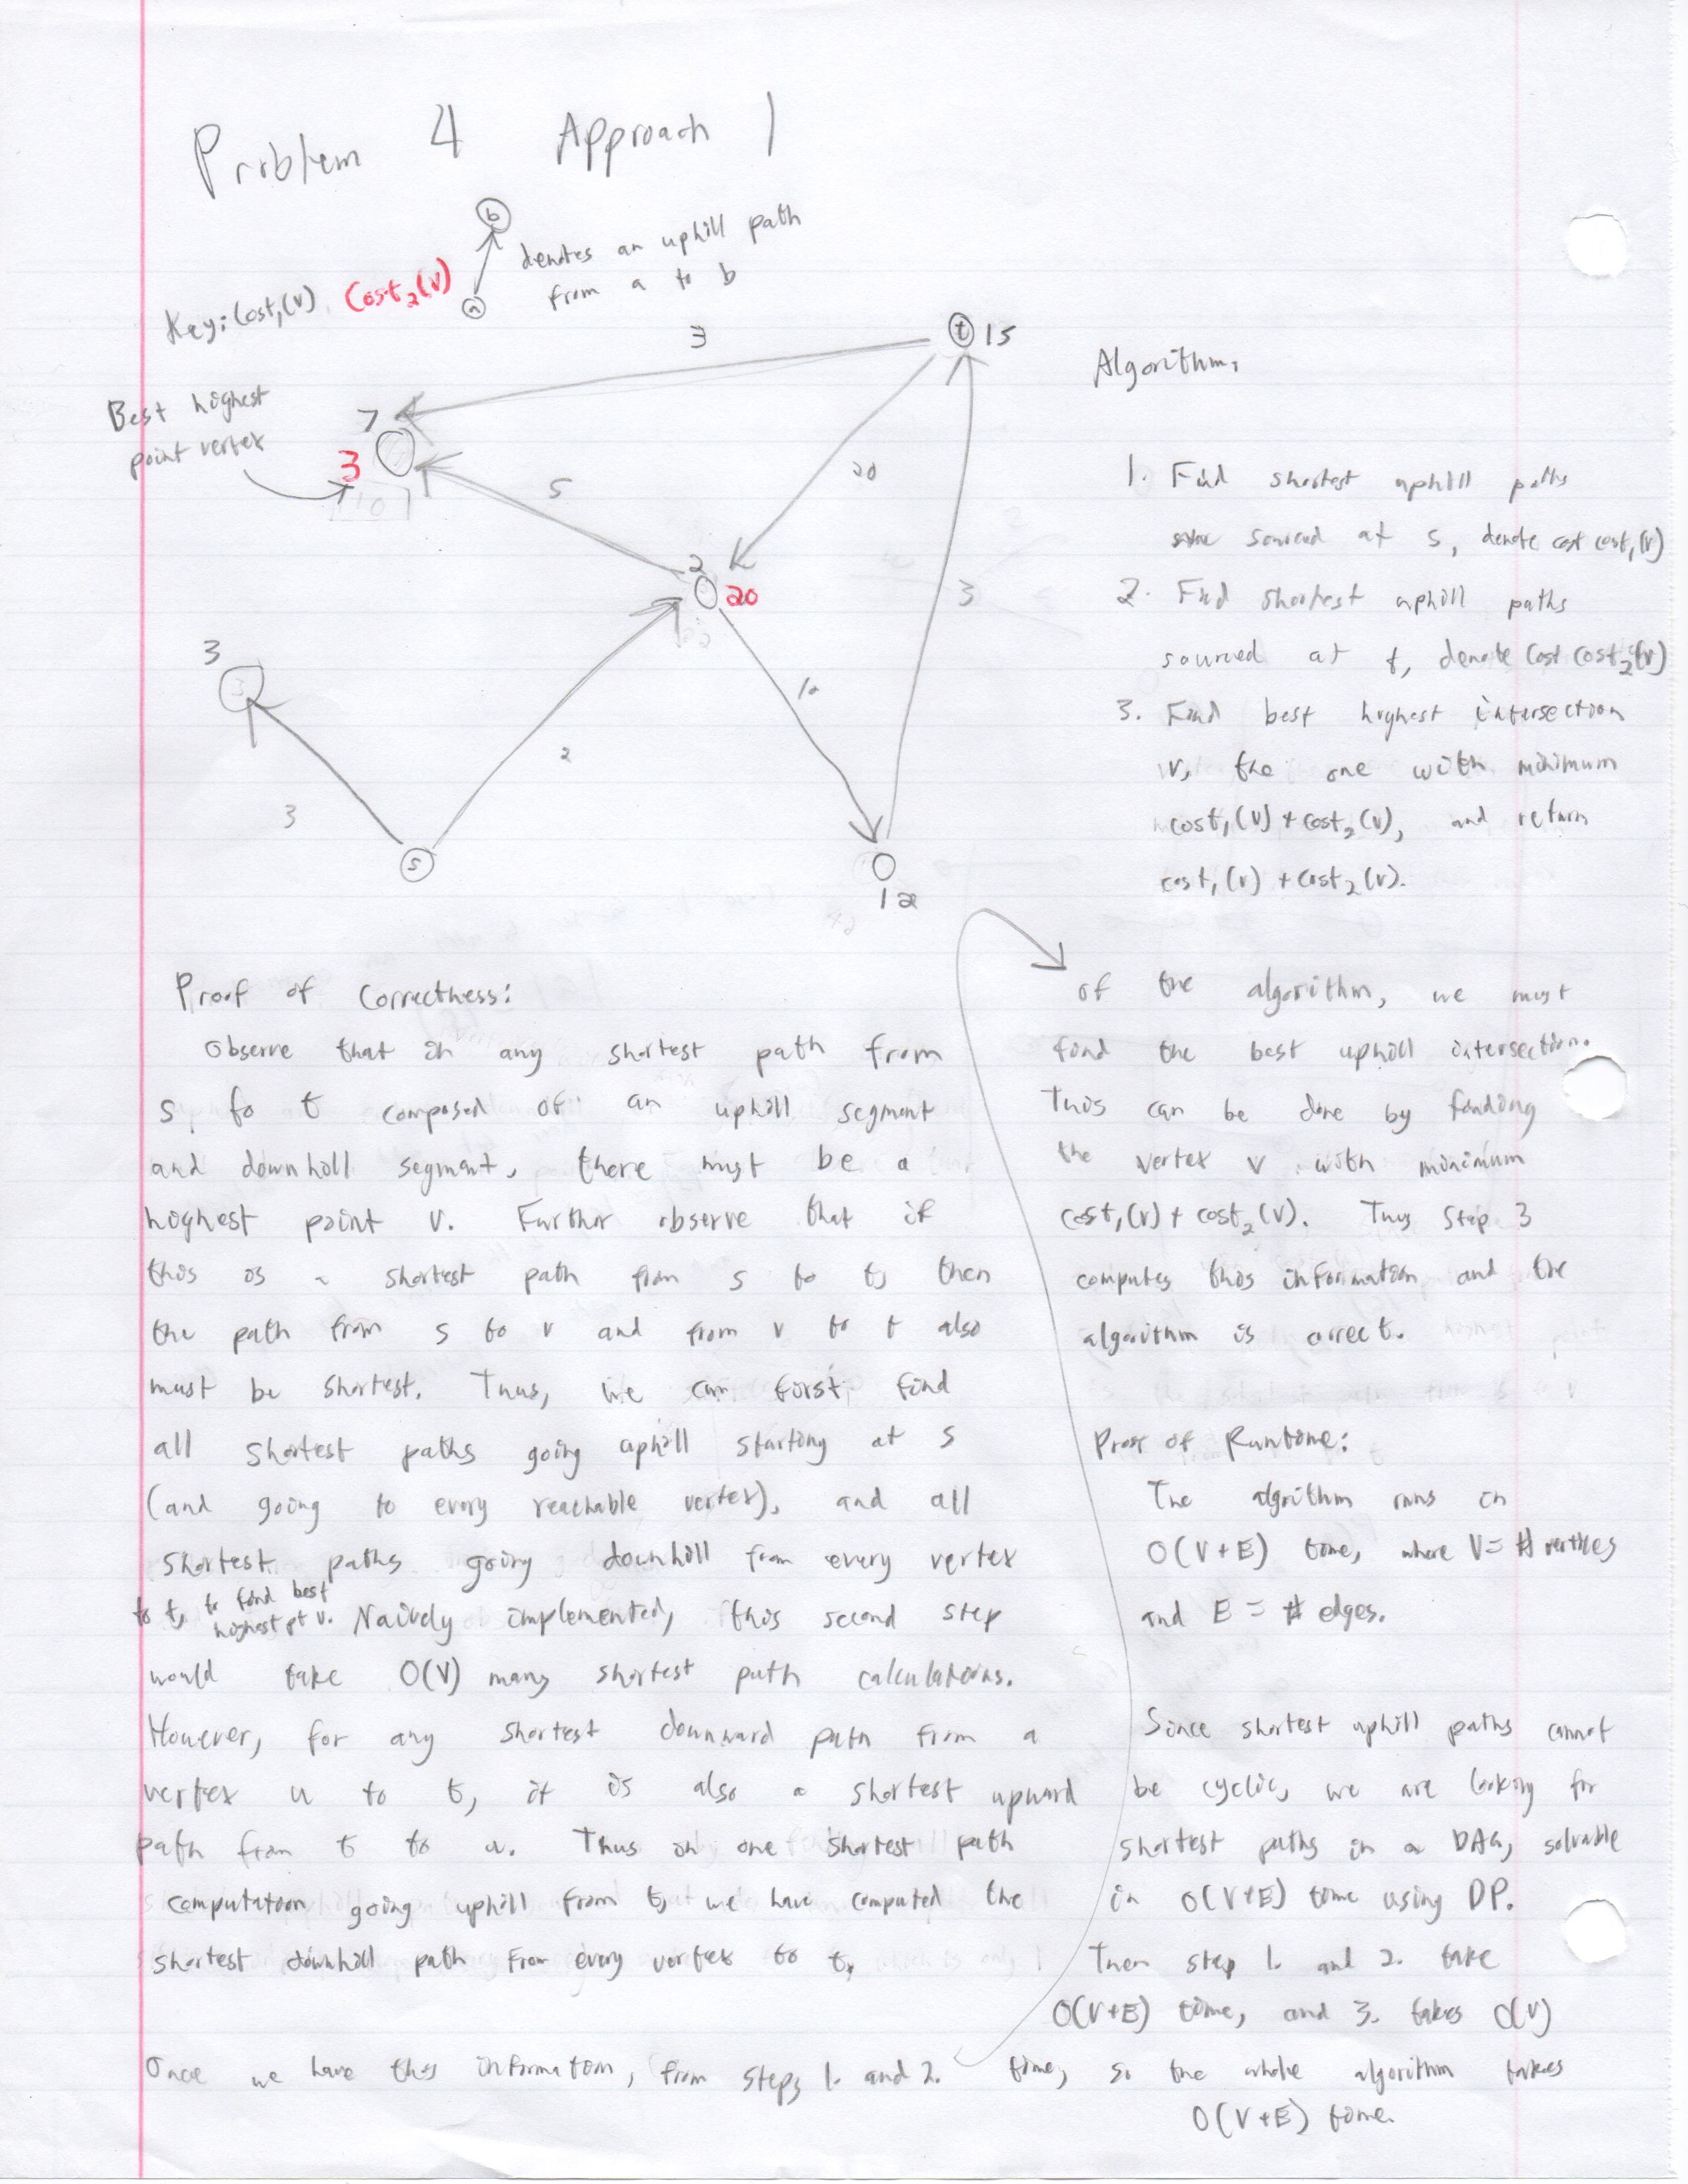 Problem 4 Approach 1
b
a
denotes an uphill path
from a to b
Key: Cost₁(v), Cost₂(v)
3
t 15
Best highest
point vertex
7
3
5
20
2
20
3
3
10
2
3
s
12
Algorithm:
1. Find shortest uphill paths
sourced at s, denote cost cost₁(v)
2. Find shortest uphill paths
sourced at t, denote cost cost₂(v)
3. Find best highest intersection
v, the one with minimum
cost₁(v) + cost₂(v), and return
cost₁(v) + cost₂(v).
Proof of Correctness:
Observe that in any shortest path from
s to t composed of an uphill segment
and downhill segment, there must be a
highest point v. Further observe that if
this is a shortest path from s to t, then
the path from s to v and from v to t also
must be shortest. Thus, we can first find
all shortest paths going uphill starting at s
(and going to every reachable vertex), and all
shortest paths going downhill from every vertex
to t, to find best
highest pt v. Naively implemented, this second step
would take O(V) many shortest path calculations.
However, for any shortest downward path from a
vertex u to t, it is also a shortest upward
path from t to u. Thus in one shortest path
computation going uphill from t, we have computed the
shortest downhill path from every vertex to t.
Once we have this information, from steps 1. and 2.
of the algorithm, we must
find the best uphill intersection.
This can be done by finding
the vertex v with minimum
cost₁(v) + cost₂(v). Thus Step 3
computes this information, and the
algorithm is correct.
Proof of Runtime:
The algorithm runs in
O(V+E) time, where V = # vertices
and E = # edges.
Since shortest uphill paths cannot
be cyclic, we are looking for
shortest paths in a DAG, solvable
in O(V+E) time using DP.
Then step 1. and 2. take
O(V+E) time, and 3. takes O(V)
time, so the whole algorithm takes
O(V+E) time.